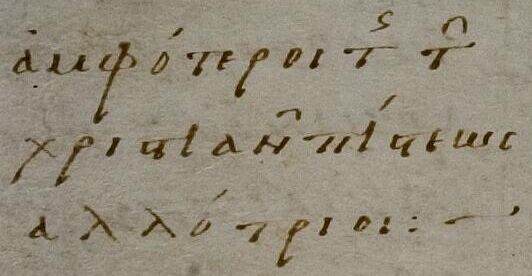 ἀμφότεροι τ͂ς τ͂
χριστιαν͂ πίστεως
ἀλλότριοι: —